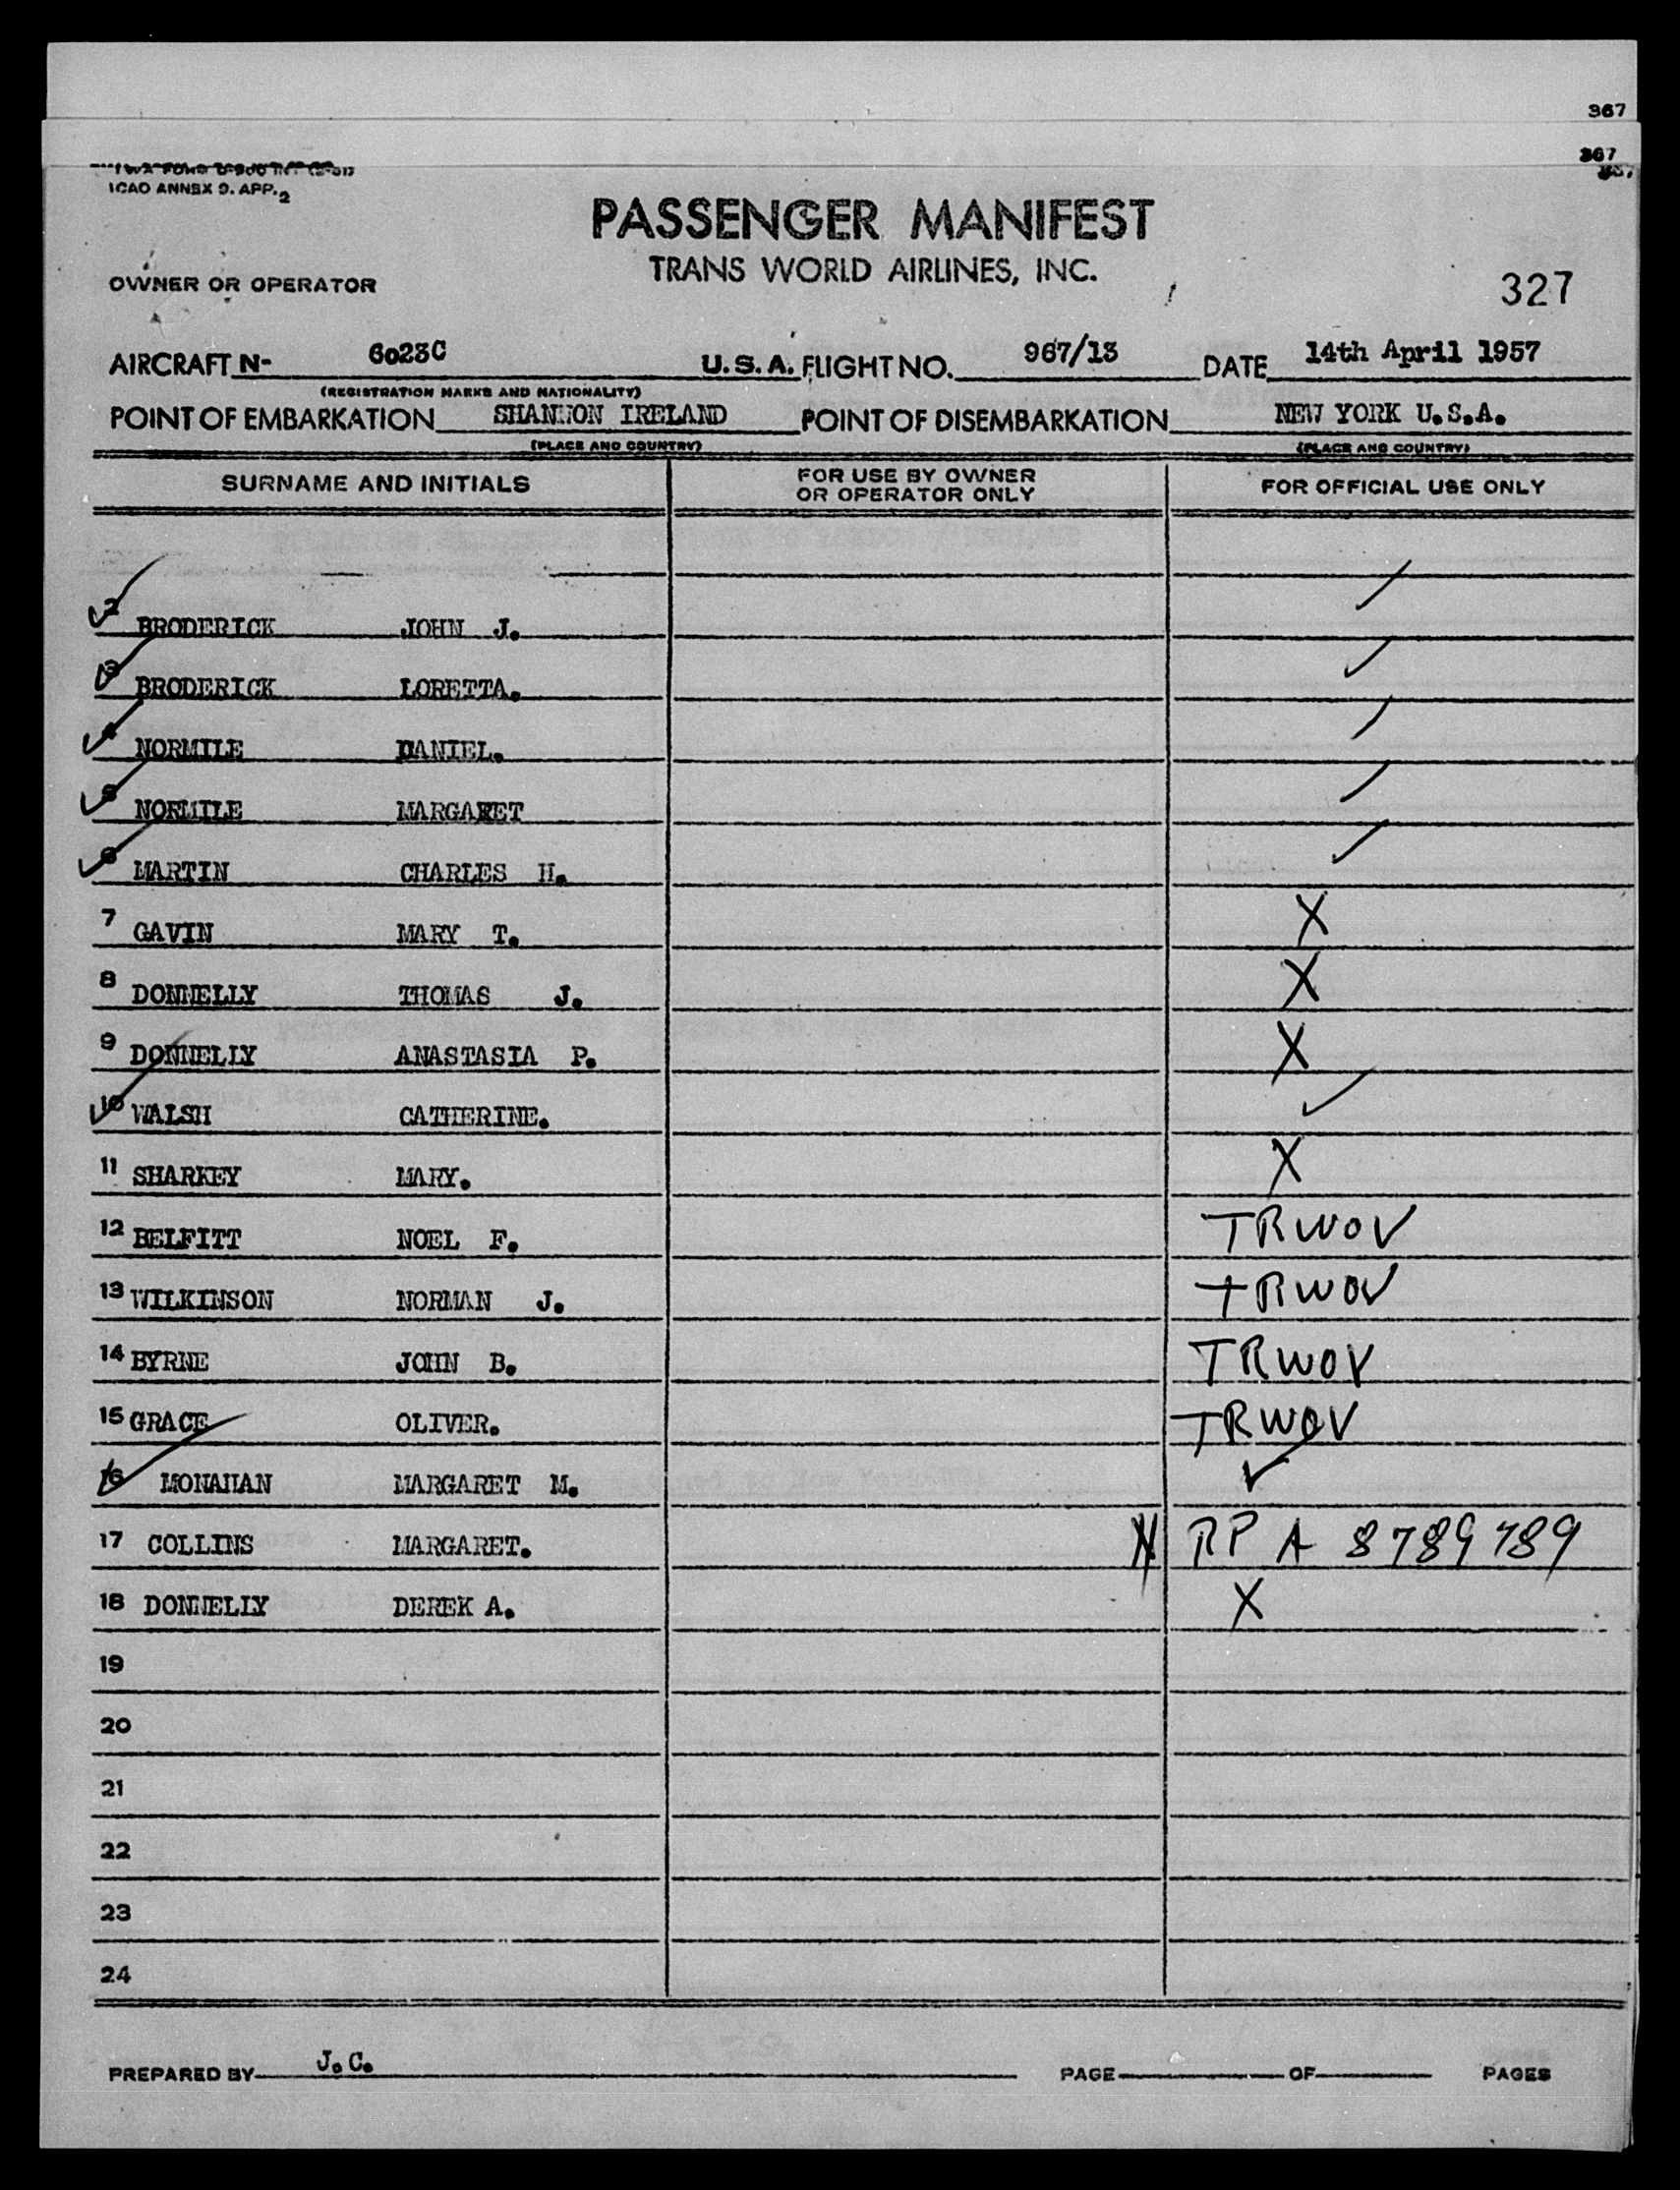 367
367
ICAO ANNEX 9. APP. 2
PASSENGER MANIFEST
TRANS WORLD AIRLINES, INC.
OWNER OR OPERATOR
327
AIRCRAFT N- 6023C U.S.A. FLIGHT NO. 967/13 DATE 14th April 1957
(REGISTRATION MARKS AND NATIONALITY)
POINT OF EMBARKATION SHANNON IRELAND POINT OF DISEMBARKATION NEW YORK U.S.A.
(PLACE AND COUNTRY) (PLACE AND COUNTRY)
SURNAME AND INITIALS FOR USE BY OWNER OR OPERATOR ONLY FOR OFFICIAL USE ONLY
2 BRODERICK JOHN J.
3 BRODERICK LORETTA.
4 NORMILE DANIEL.
5 NORMILE MARGARET
6 MARTIN CHARLES H.
7 GAVIN MARY T. X
8 DONNELLY THOMAS J. X
9 DONNELLY ANASTASIA P. X
10 WALSH CATHERINE.
11 SHARKEY MARY. X
12 BELFITT NOEL F. TRWOV
13 WILKINSON NORMAN J. TRWOV
14 BYRNE JOHN B. TRWOV
15 GRACE OLIVER. TRWOV
16 MONAHAN MARGARET M.
17 COLLINS MARGARET. RP A 8789789
18 DONNELLY DEREK A. X
19
20
21
22
23
24
PREPARED BY J.C. PAGE OF PAGES